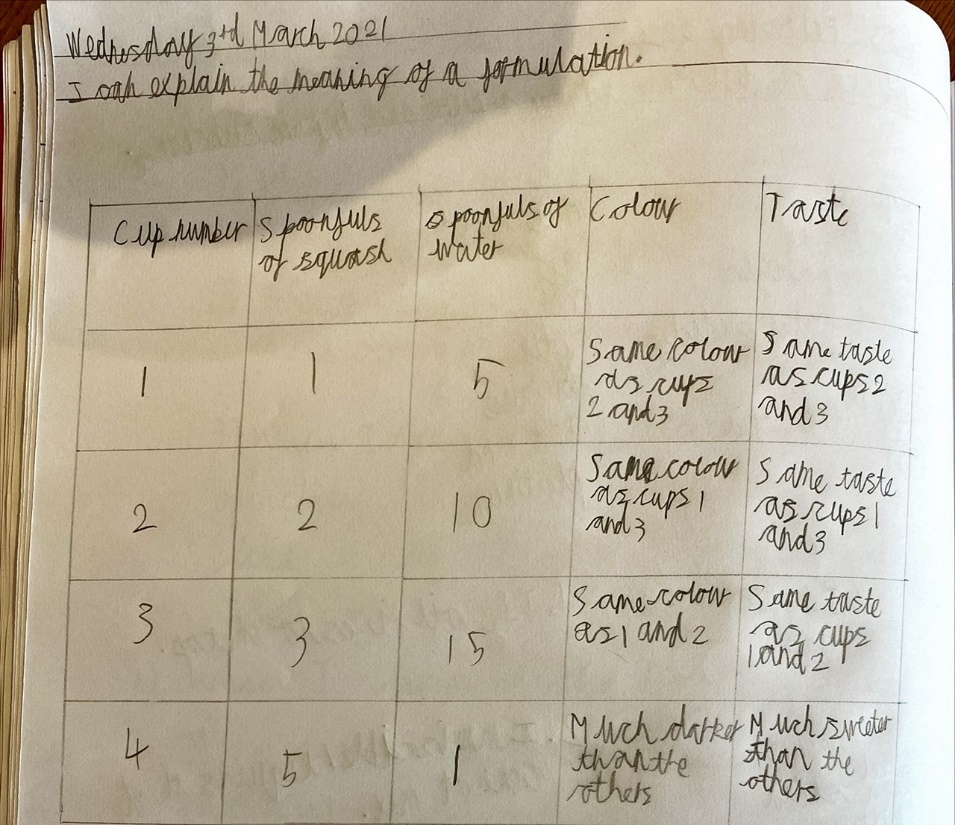 Wednesday 3rd March 2021
I can explain the meaning of a formulation.
Cup number
Spoonfuls
of squash
Spoonfuls of
water
Colour
Taste
1
1
5
Same colour
as cups
2 and 3
Same taste
as cups 2
and 3
2
2
10
Same colour
as cups 1
and 3
Same taste
as cups 1
and 3
3
3
15
Same colour
as 1 and 2
Same taste
as cups
1 and 2
4
5
1
Much darker
than the
others
Much sweeter
than the
others